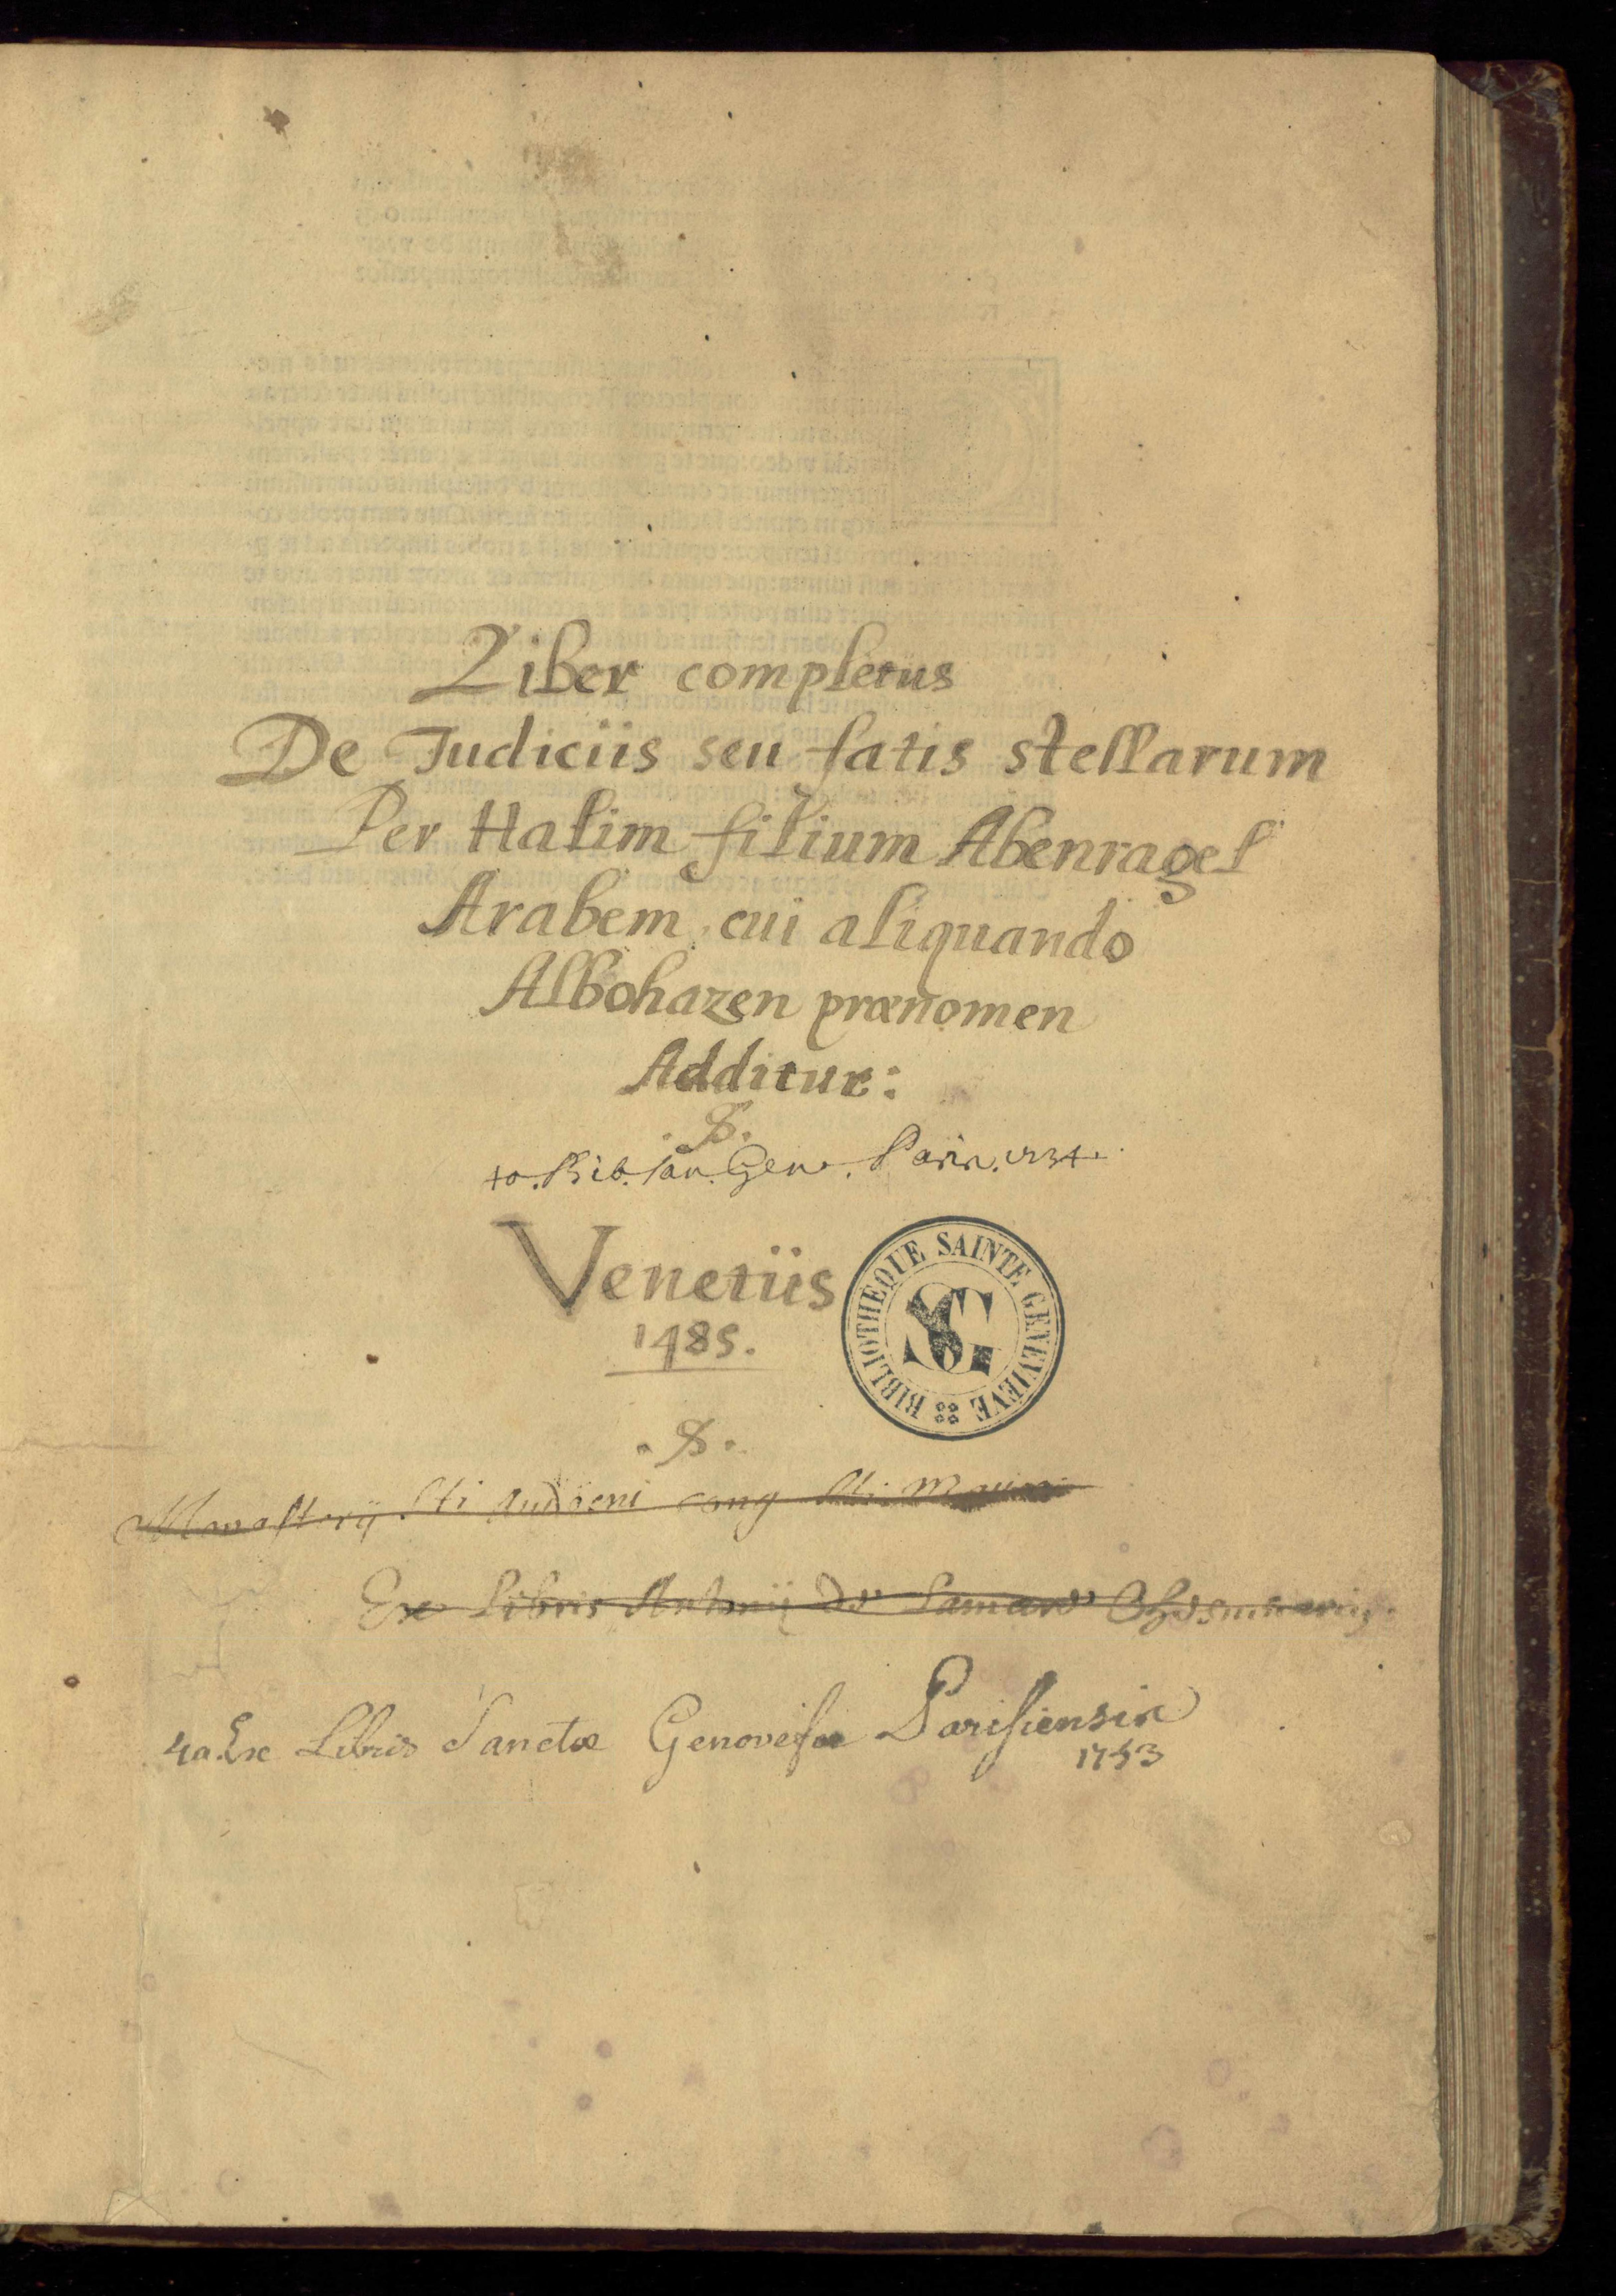 Liber completus
De Judiciis seu fatis stellarum
Per Halim filium Abenragel
Arabem cui aliquando
Albohazen prænomen
Additur:
.S.
Bib. San. Gen. Paris. 1734.
Venetiis
1485.
BIBLIOTHEQUE SAINTE GENEVIEVE
SG
.S.
Monasterij Sti Audoeni cong Sti Mauri
Ex Libris Antonij De
4a. Ex Libris Sanctæ Genovefæ Parisiensis
1753